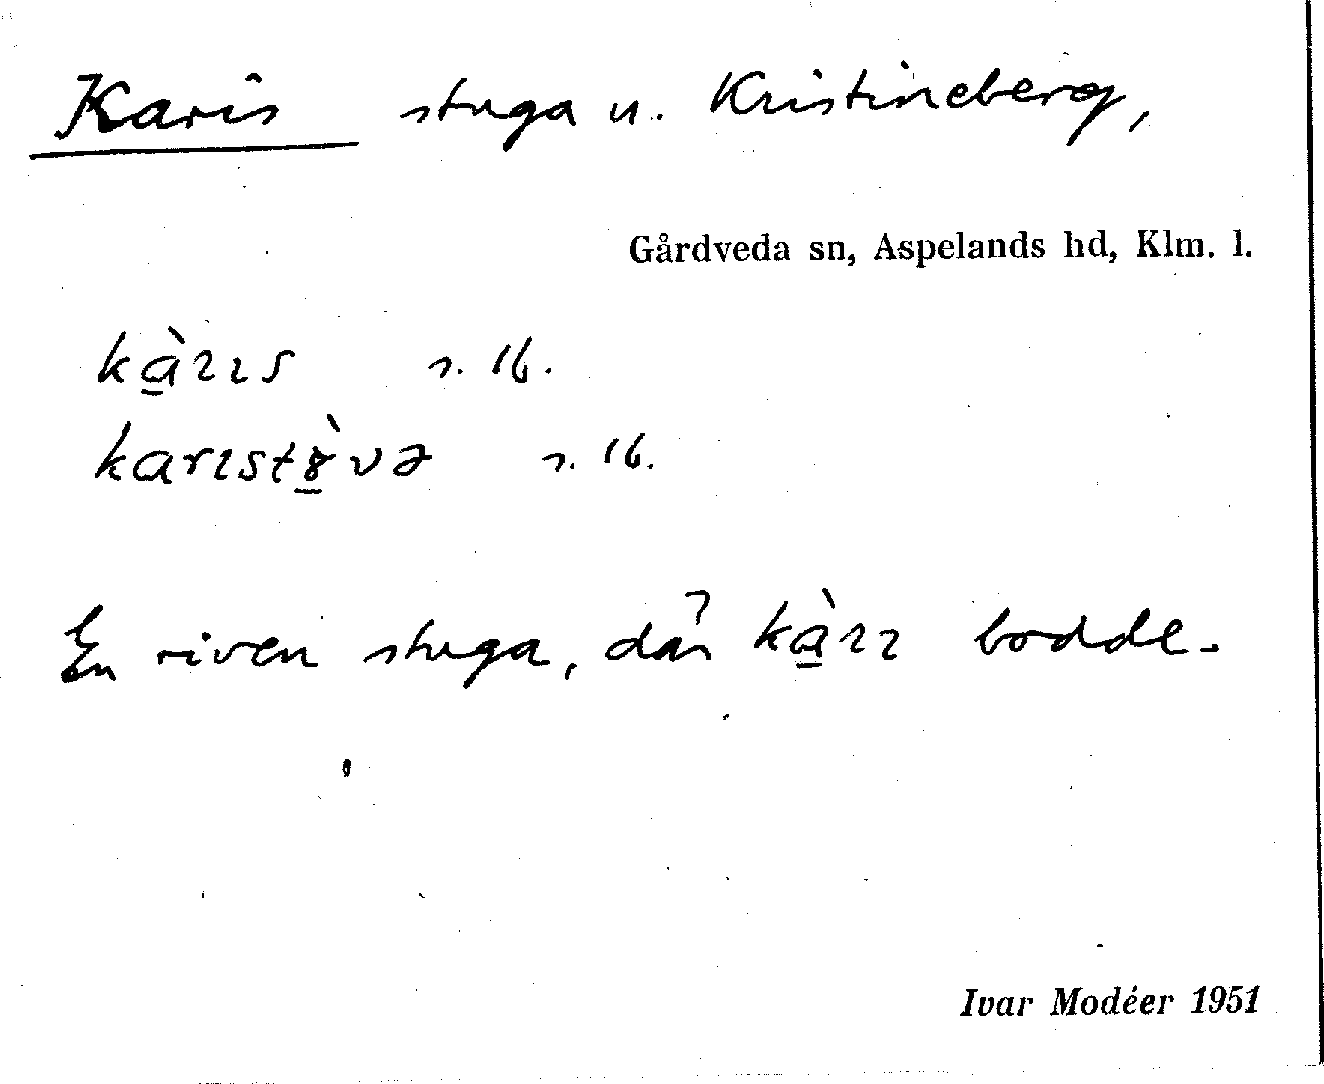 Karis stuga u. Kristineberg,
Gårdveda sn, Aspelands hd, Klm. l.
kàrɪs s. 16.
karɪstȣ̀və s. 16.
En riven stuga, där kàrɪ bodde.
Ivar Modéer 1951